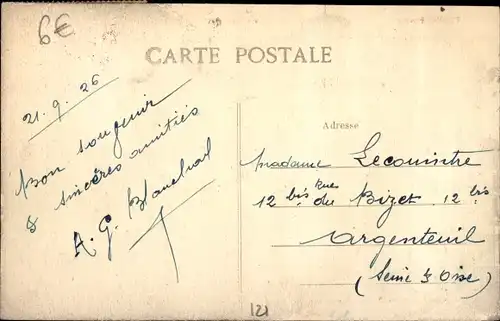 6€
CARTE POSTALE
21.9.26
Bon souvenir
& sincères amitiés
A. G. Blanchard
Adresse
Madame Lecointre
12 bis Rue du Bizet 12 bis
Argenteuil
(Seine & Oise)
121